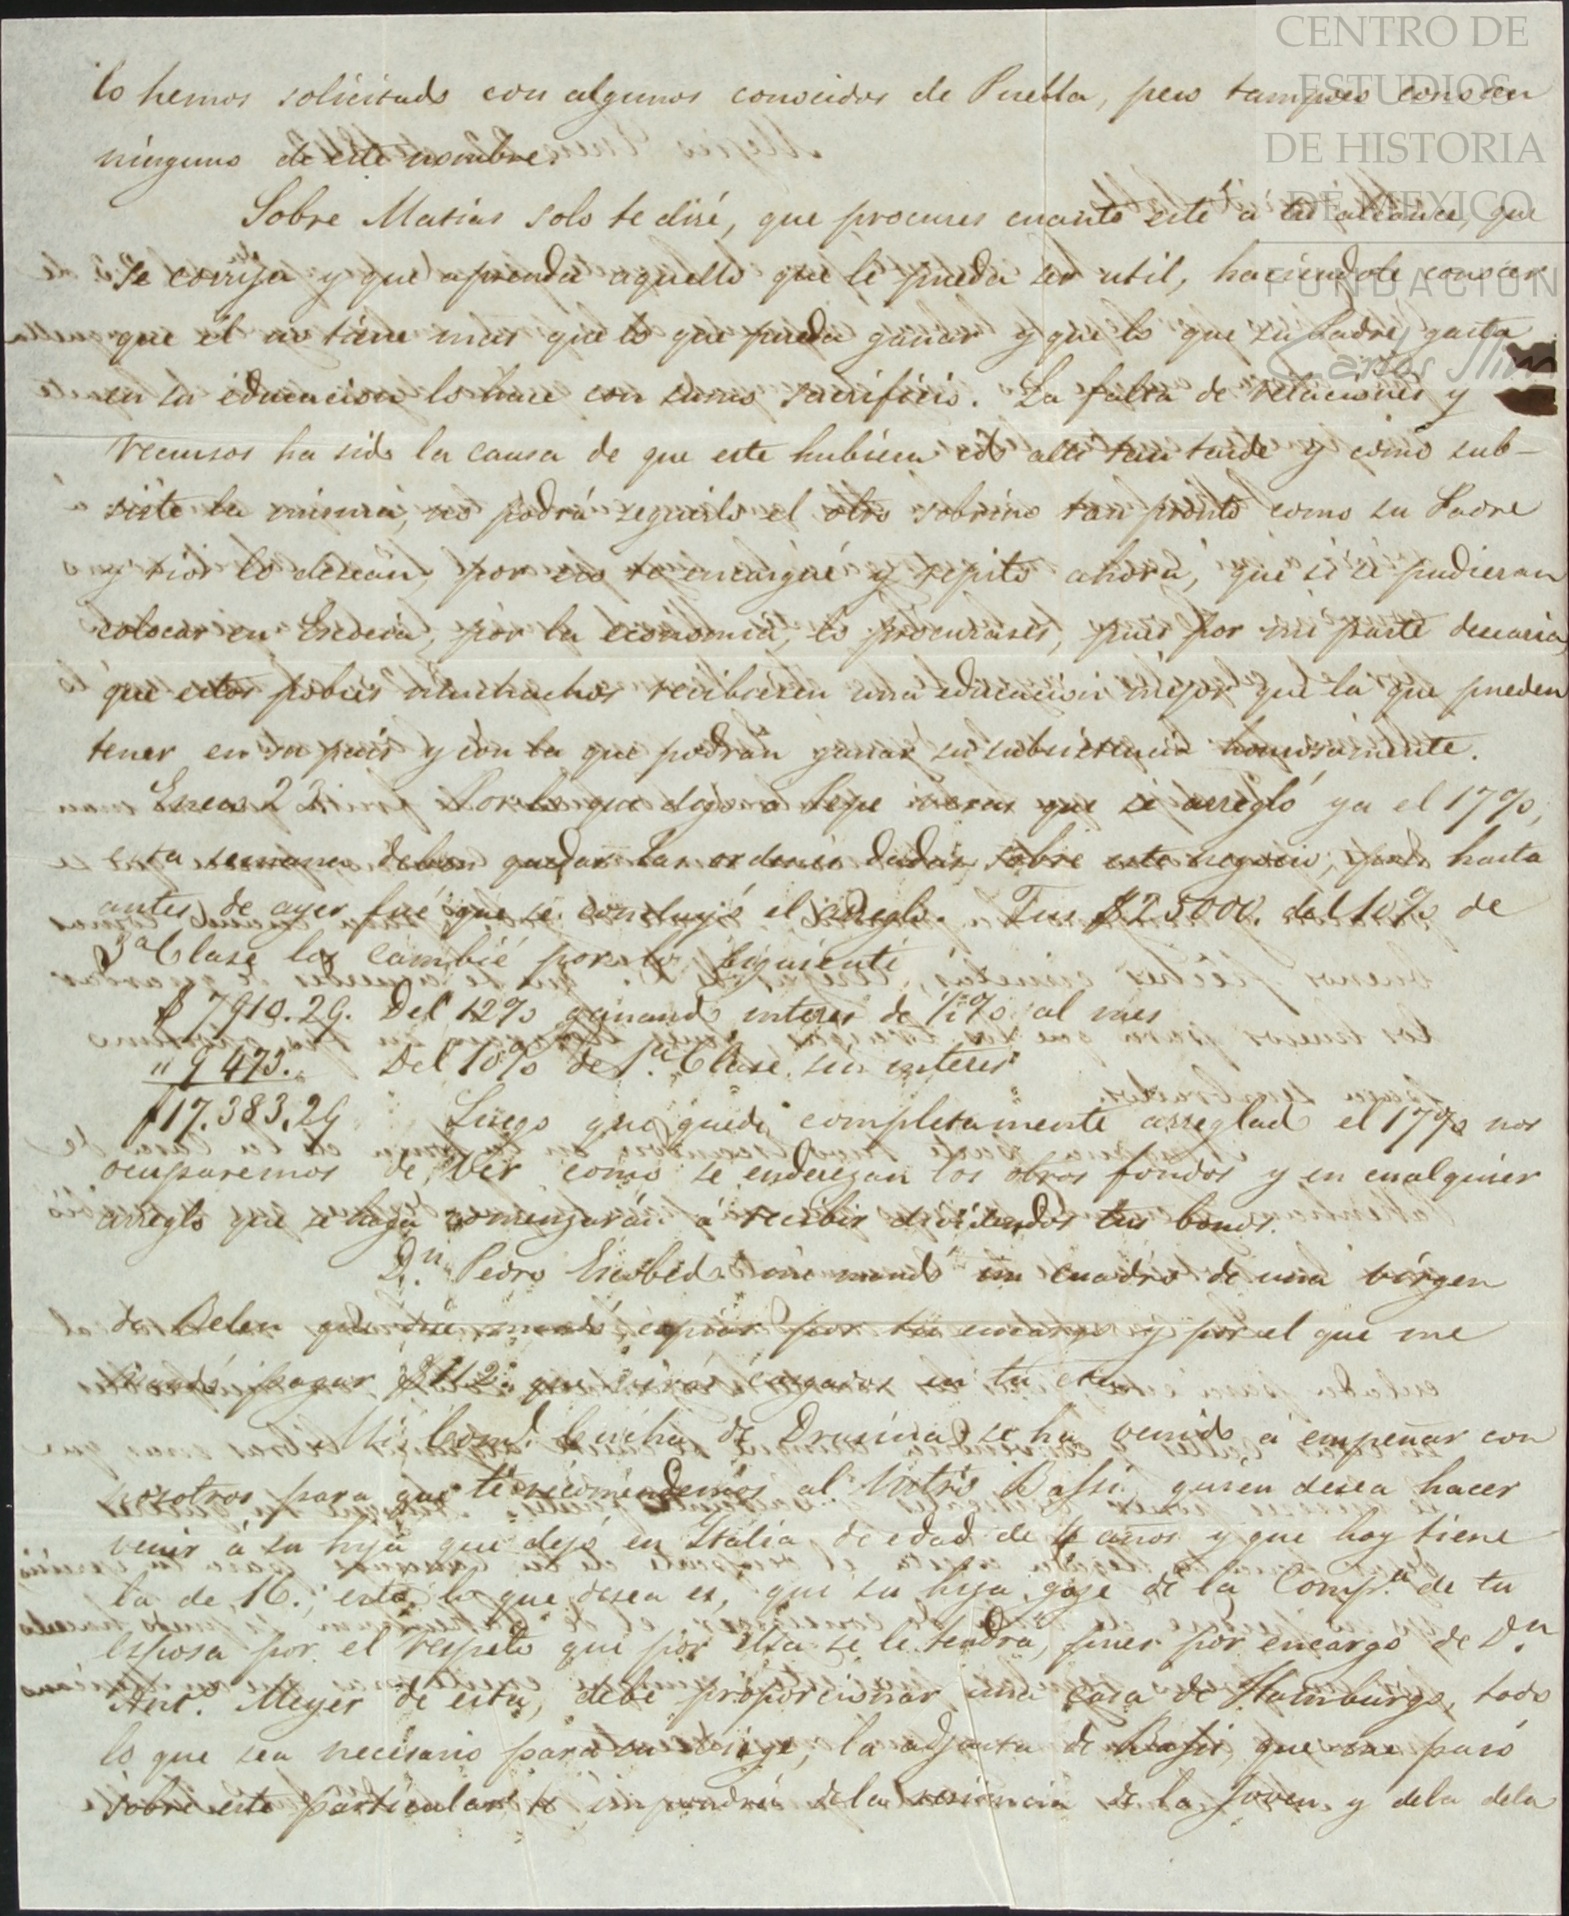 CENTRO DE
ESTUDIOS
DE HISTORIA
DE MEXICO
FUNDACION
Carlos Slim
lo hemos solicitado con algunos conocidos de Puebla, pero tampoco conocen
ninguno de este nombre.
Sobre Matias solo te diré, que procures cuanto esté á tu alcance, que
se corrija y que aprenda aquello que le pueda ser util, haciendole conocer
que él no tiene mas que lo que pueda ganar y que lo que su Padre gasta
en su educacion lo hace con sumo sacrificio. La falta de relaciones y
recursos ha sido la causa de que este hubiera ido alli tan tarde y como sub-
siste la misma, no podrá seguirlo el otro sobrino tan pronto como su Padre
y tios lo desean, por eso te encargué y repito ahora, que si se pudieran
colocar en Escocia, por la economia, lo procurases, pues por mi parte desearia,
que estos pobres muchachos recibiesen una educacion mejor que la que pueden
tener en su pais y con la que podrán ganar su subsistencia honrosamente.
Enero 22. Por lo que digo a Pepe veras que se arregló ya el 17%,
esta semana deben quedar las ordenes dadas sobre este negocio, pues hasta
antes de ayer fué que se concluyó el arreglo. Tus $25000. del 10% de
3ª Clase los cambié por lo siguiente
$ 7910.29. Del 12% ganando interes de ½% al mes
" 9473. Del 10% de 1ª. Clase sin interes
$17.383.29 Luego que quede completamente arreglado el 17% nos
ocuparemos de ver como se enderezan los otros fondos y en cualquier
arreglo que se haga comenzarán á recibir dividendos tus bonos.
Dn. Pedro Escobedo me mandó un cuadro de una virgen
de Belen que me mandó copiar por tu encargo y por el que me
mandó pagar $112. que verás cargados en tu cta.
Mi Comd. Concha de Drusina se ha venido á empeñar con
nosotros para que te recomendemos al Mtro Bassi, quien desea hacer
venir á su hija que dejó en Italia de edad de 4 años y que hoy tiene
la de 16.; esto lo que desea es, que su hija goze de la Comp.a de tu
esposa por el respeto que por ella se le tendrá, pues por encargo de Dn.
Ant.o Meyer de esta, debe proporcionar una casa de Hamburgo, todo
lo que sea necesario para su viage, la adjunta de Bassi que me pasó
sobre este particular te impondrá de la residencia de la Joven y de la de la